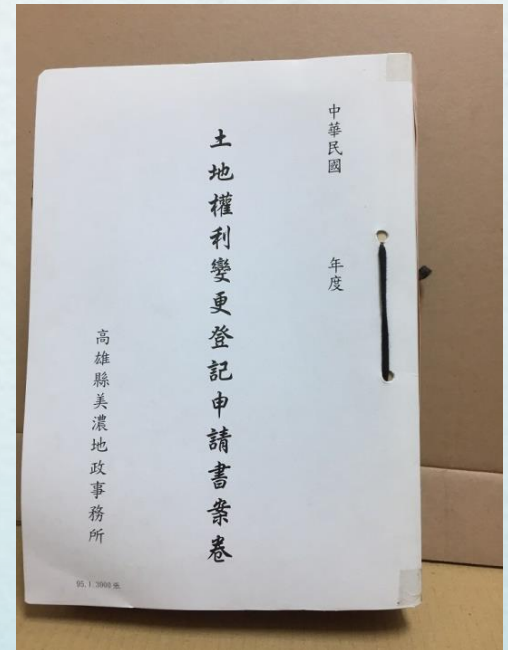 中華民國　年度
土地權利變更登記申請書案卷
高雄縣美濃地政事務所
95.1.3000張